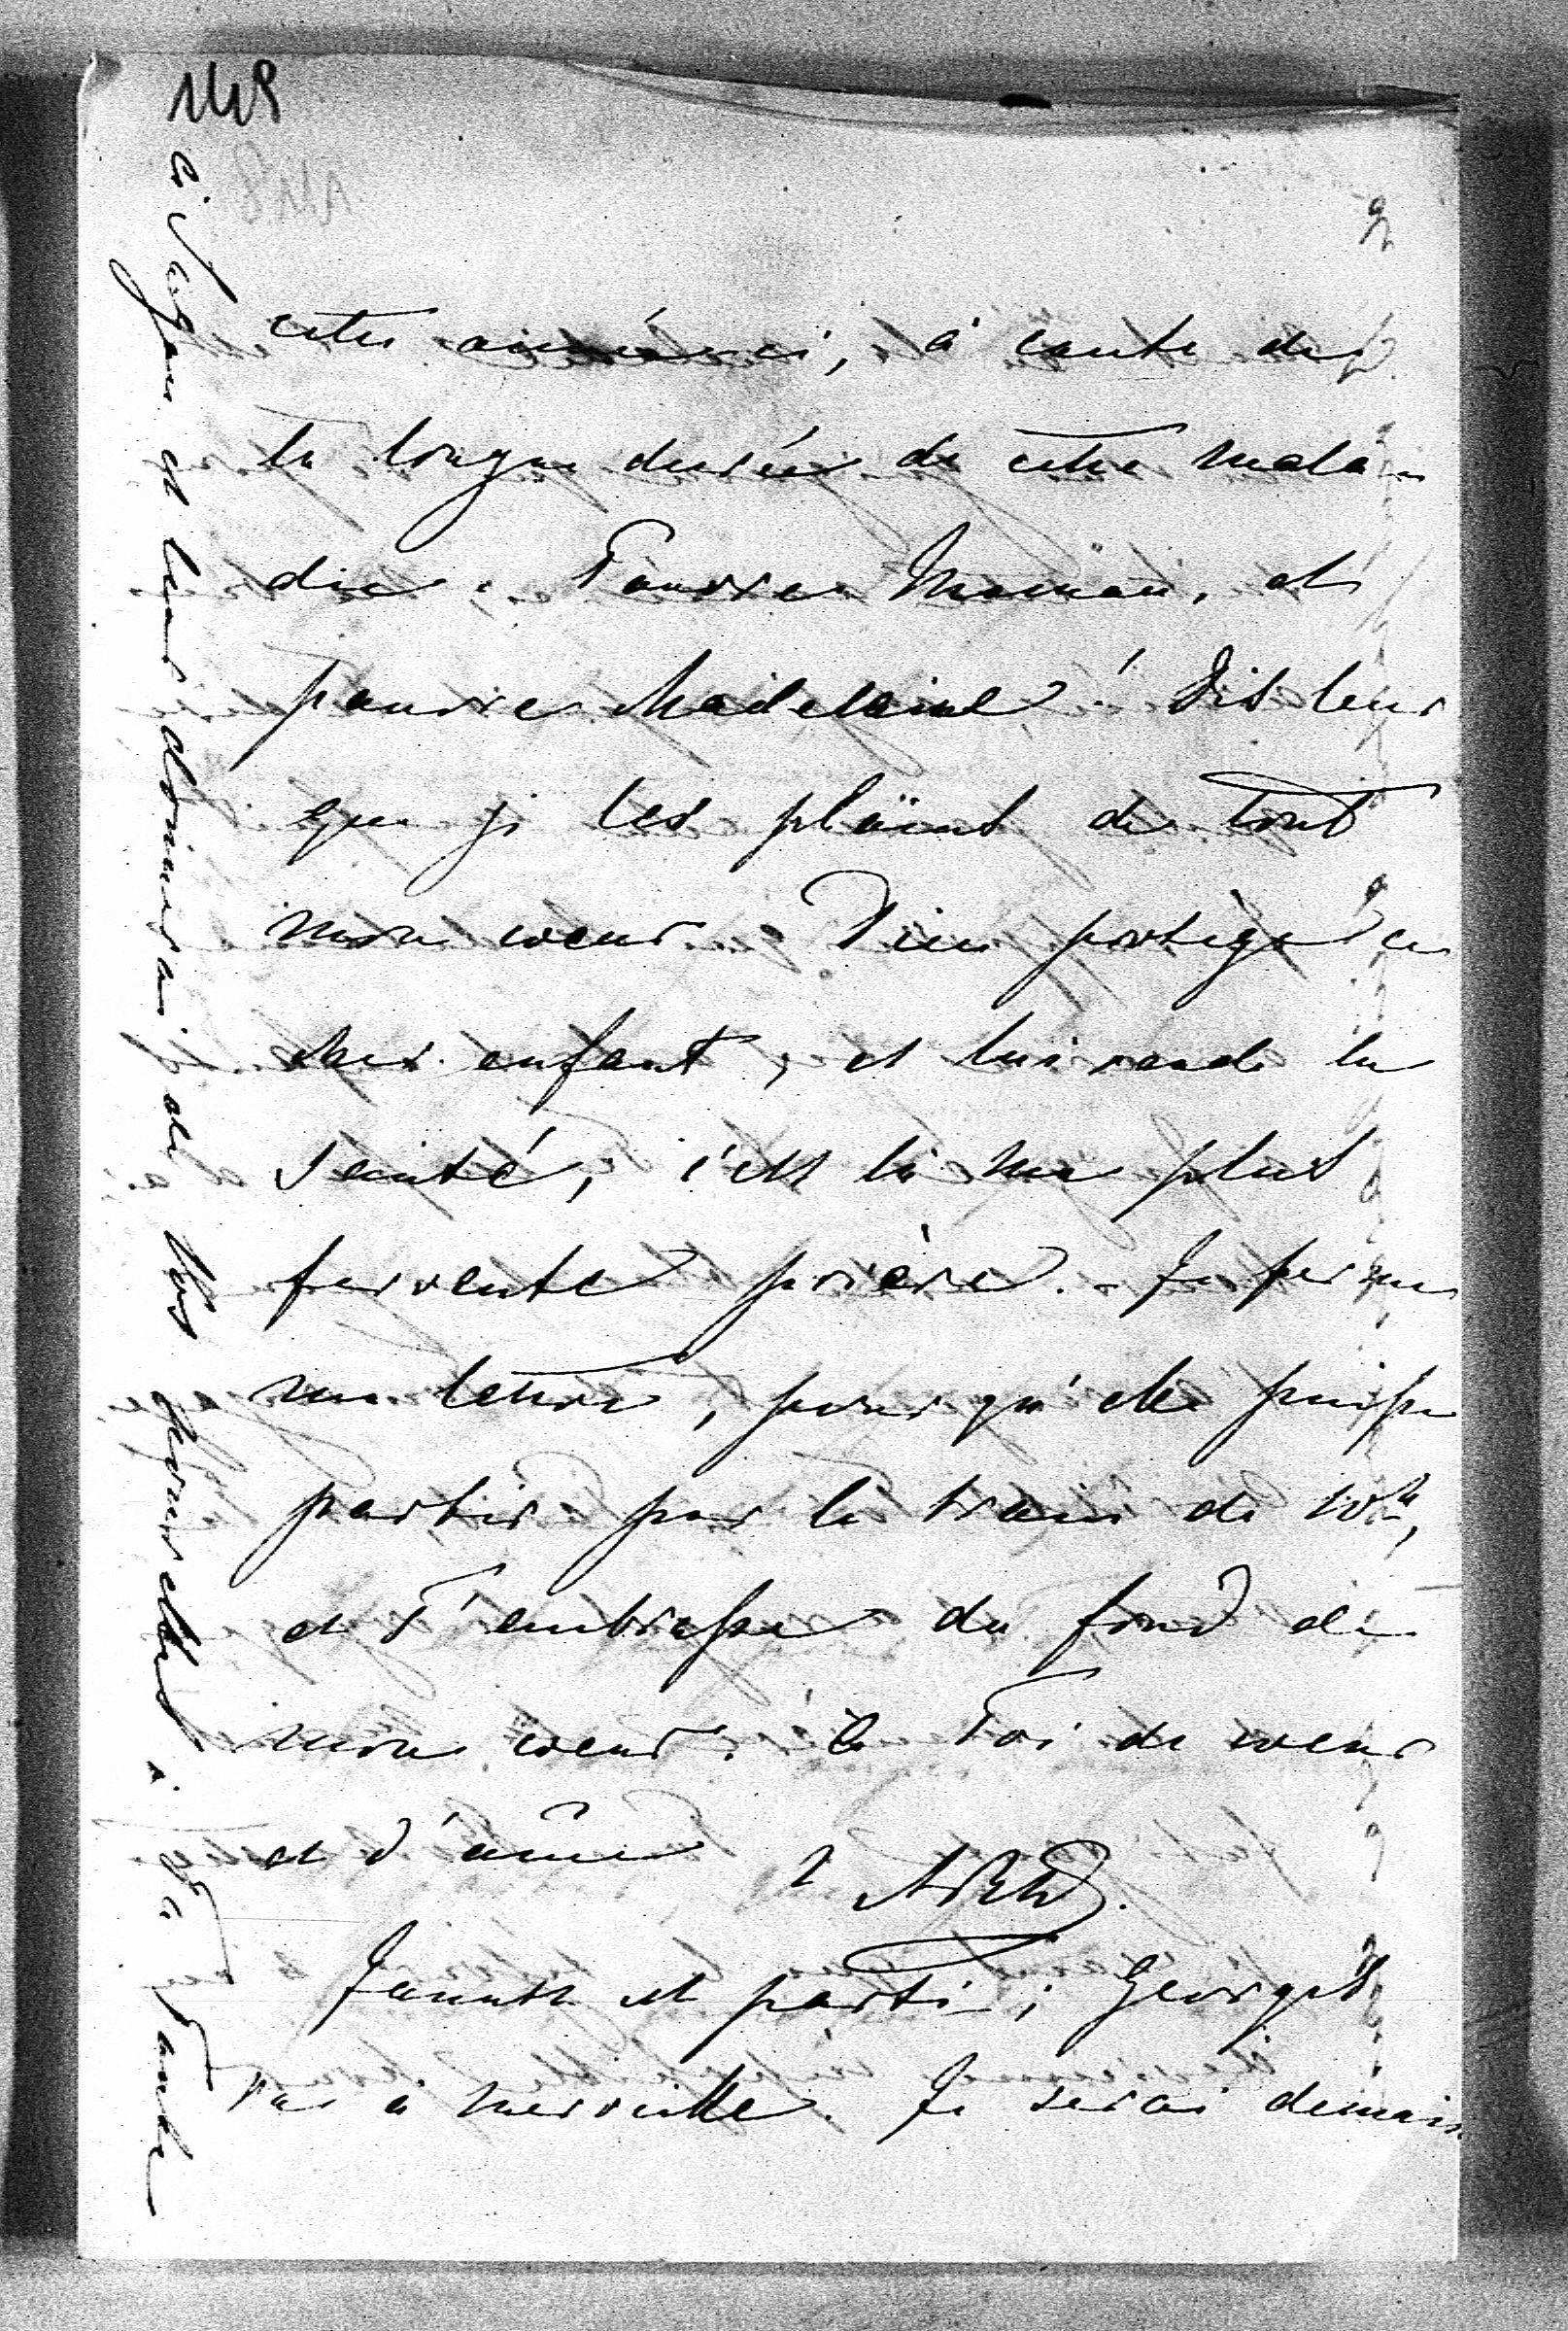 148
cette année-ci, à cause de
la longue durée de cette mala-
die. Pauvre Maman, et
pauvre Madeleine! Dis leur
que je les plains de tout
mon coeur. Dieu protège ce
cher enfant, et lui rende la
santé, c'est là ma plus
fervente prière. – Je ferme
ma lettre, pour qu'elle puisse
partir par le train de 10h,
et t'embrasse du fond de
mon coeur. à Toi de coeur
et d'âme
est parti; Georges
va à merveille. Je serai demain
à Sagan et leur donnerai de vos nouvelles à ta Tante